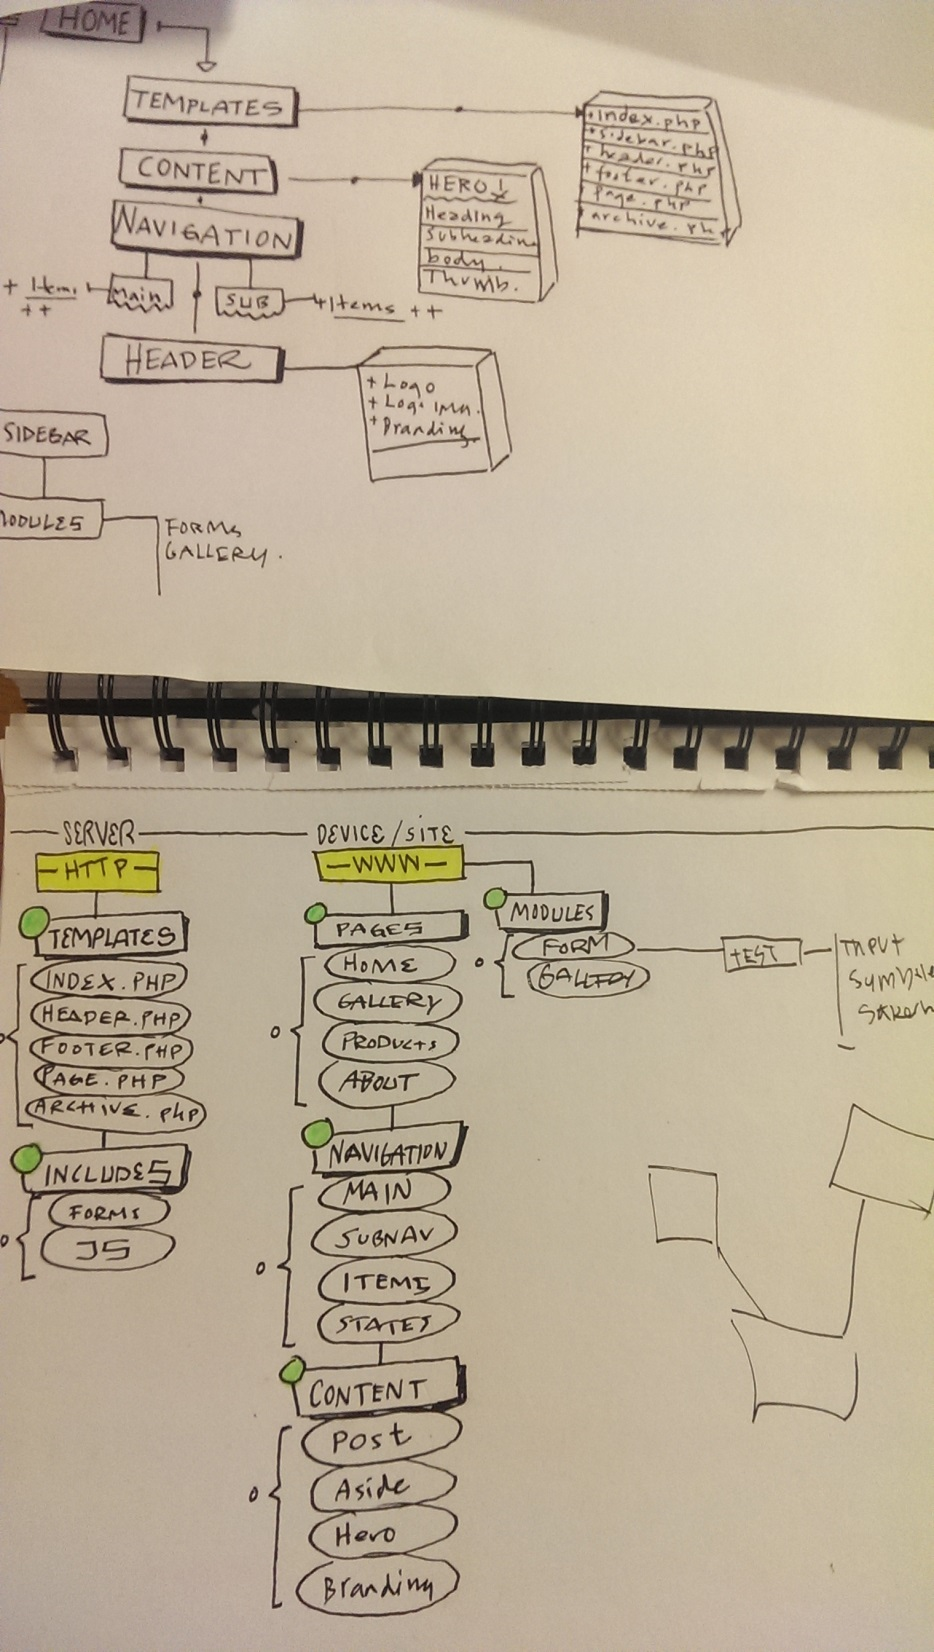 HOME
TEMPLATES
+index.php
+sidebar.php
+header.php
+footer.php
page.php
archive.ph
CONTENT
HERO 1
Heading
Subheading
body.
Thumb.
NAVIGATION
+ Items
++
Main
SUB
+Items ++
HEADER
+ Logo
+ Logo IMG.
+ Branding
SIDEBAR
MODULES
FORMS
GALLERY.
SERVER
HTTP
TEMPLATES
INDEX.PHP
HEADER.PHP
FOOTER.PHP
PAGE.PHP
ARCHIVE.php
INCLUDES
FORMS
JS
DEVICE/SITE
WWW
PAGES
HOME
GALLERY
PRODUCTS
ABOUT
NAVIGATION
MAIN
SUBNAV
ITEMS
STATES
CONTENT
Post
Aside
Hero
Branding
MODULES
FORM
GALLERY
TEST
INPUT